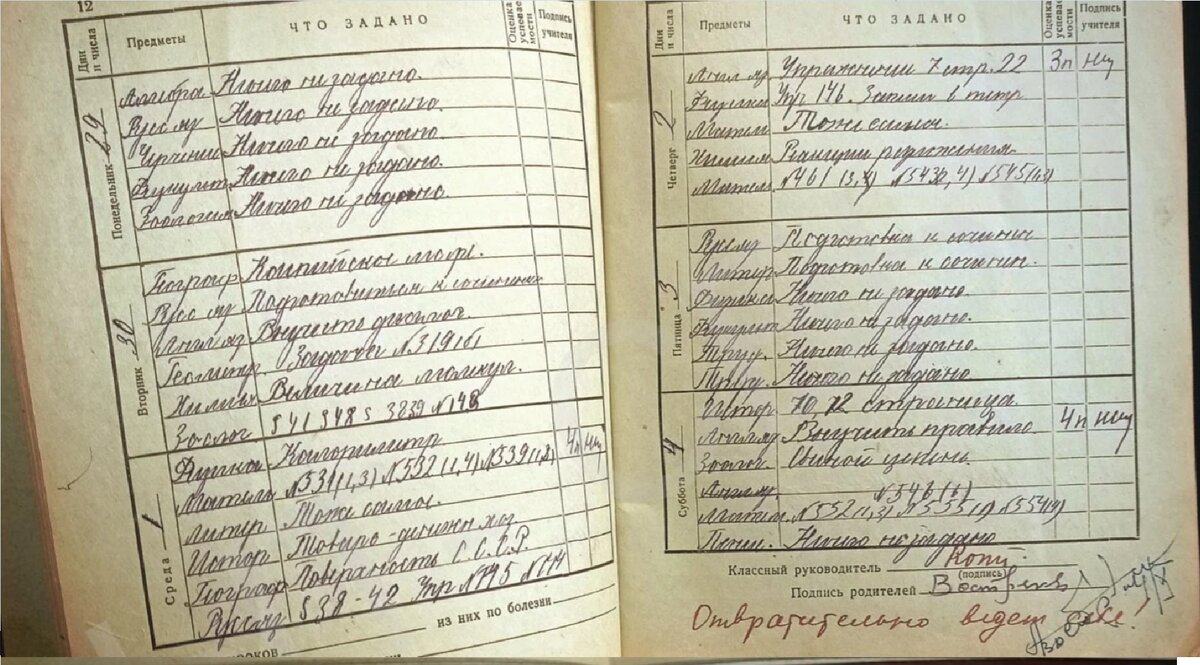 12
Дни и числа
Предметы
ЧТО ЗАДАНО
Оценка успевае мости
Подпись учителя
Понедельник 29
Алгебра Ничего не задано.
Русс яз Ничего не задано.
Черчении Ничего не задано
Физкульт Ничего не задано.
Зоологии Ничего не задано.
Вторник 30
Географ Каспийское море.
Русс яз Подготовиться к сочинению
Англ яз Выучить диалог
Геометр. Задача №319(б)
Химия Величина молекул.
Зоолог § 41 §48 § 38 39 №148
Среда 1
Физика Калориметр
Матем №531(1,3) №532(1,4) №539(1,2) 4п
Литер Тоже самое.
Истор Товаро-денежн хоз
Географ Поверхность С.С.С.Р
Русс яз § 38-42 Упр №145 №144
уроков
из них по болезни
Дни и числа
Предметы
ЧТО ЗАДАНО
Оценка успевае мости
Подпись учителя
Четверг 2
Англ яз Упражнении 7 стр. 22 3п
Русский Упр 146. Запись в тетр
Матем Тоже самое.
Химии Реакции разложения
Матем №461(3,4) №543(2,4) №545(1,3)
Пятница 3
Русс яз Подготовка к сочинен
Литер Подготовка к сочинен.
Физика Ничего не задано.
Физкульт Ничего не задано.
Труд. Ничего не задано.
Труд. Ничего не задано
Суббота 4
Истор 70, 72 страница
Англ яз Выучить правило 4п
Зоолог Свиной цепень.
Англ яз.
№546(б)
Матем №552(1,3) №555(1) №554(4)
Пении. Ничего не задано
Классный руководитель
(подпись)
Подпись родителей
Отвратительно ведет себе!